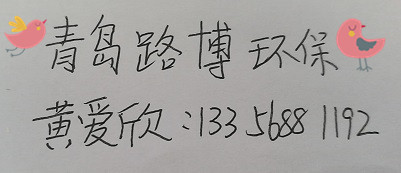 青岛路博环保
黄爱欣:133 5688 1192